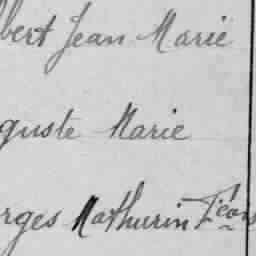 lbert Jean Marie
guste Marie
rges Mathurin Jean